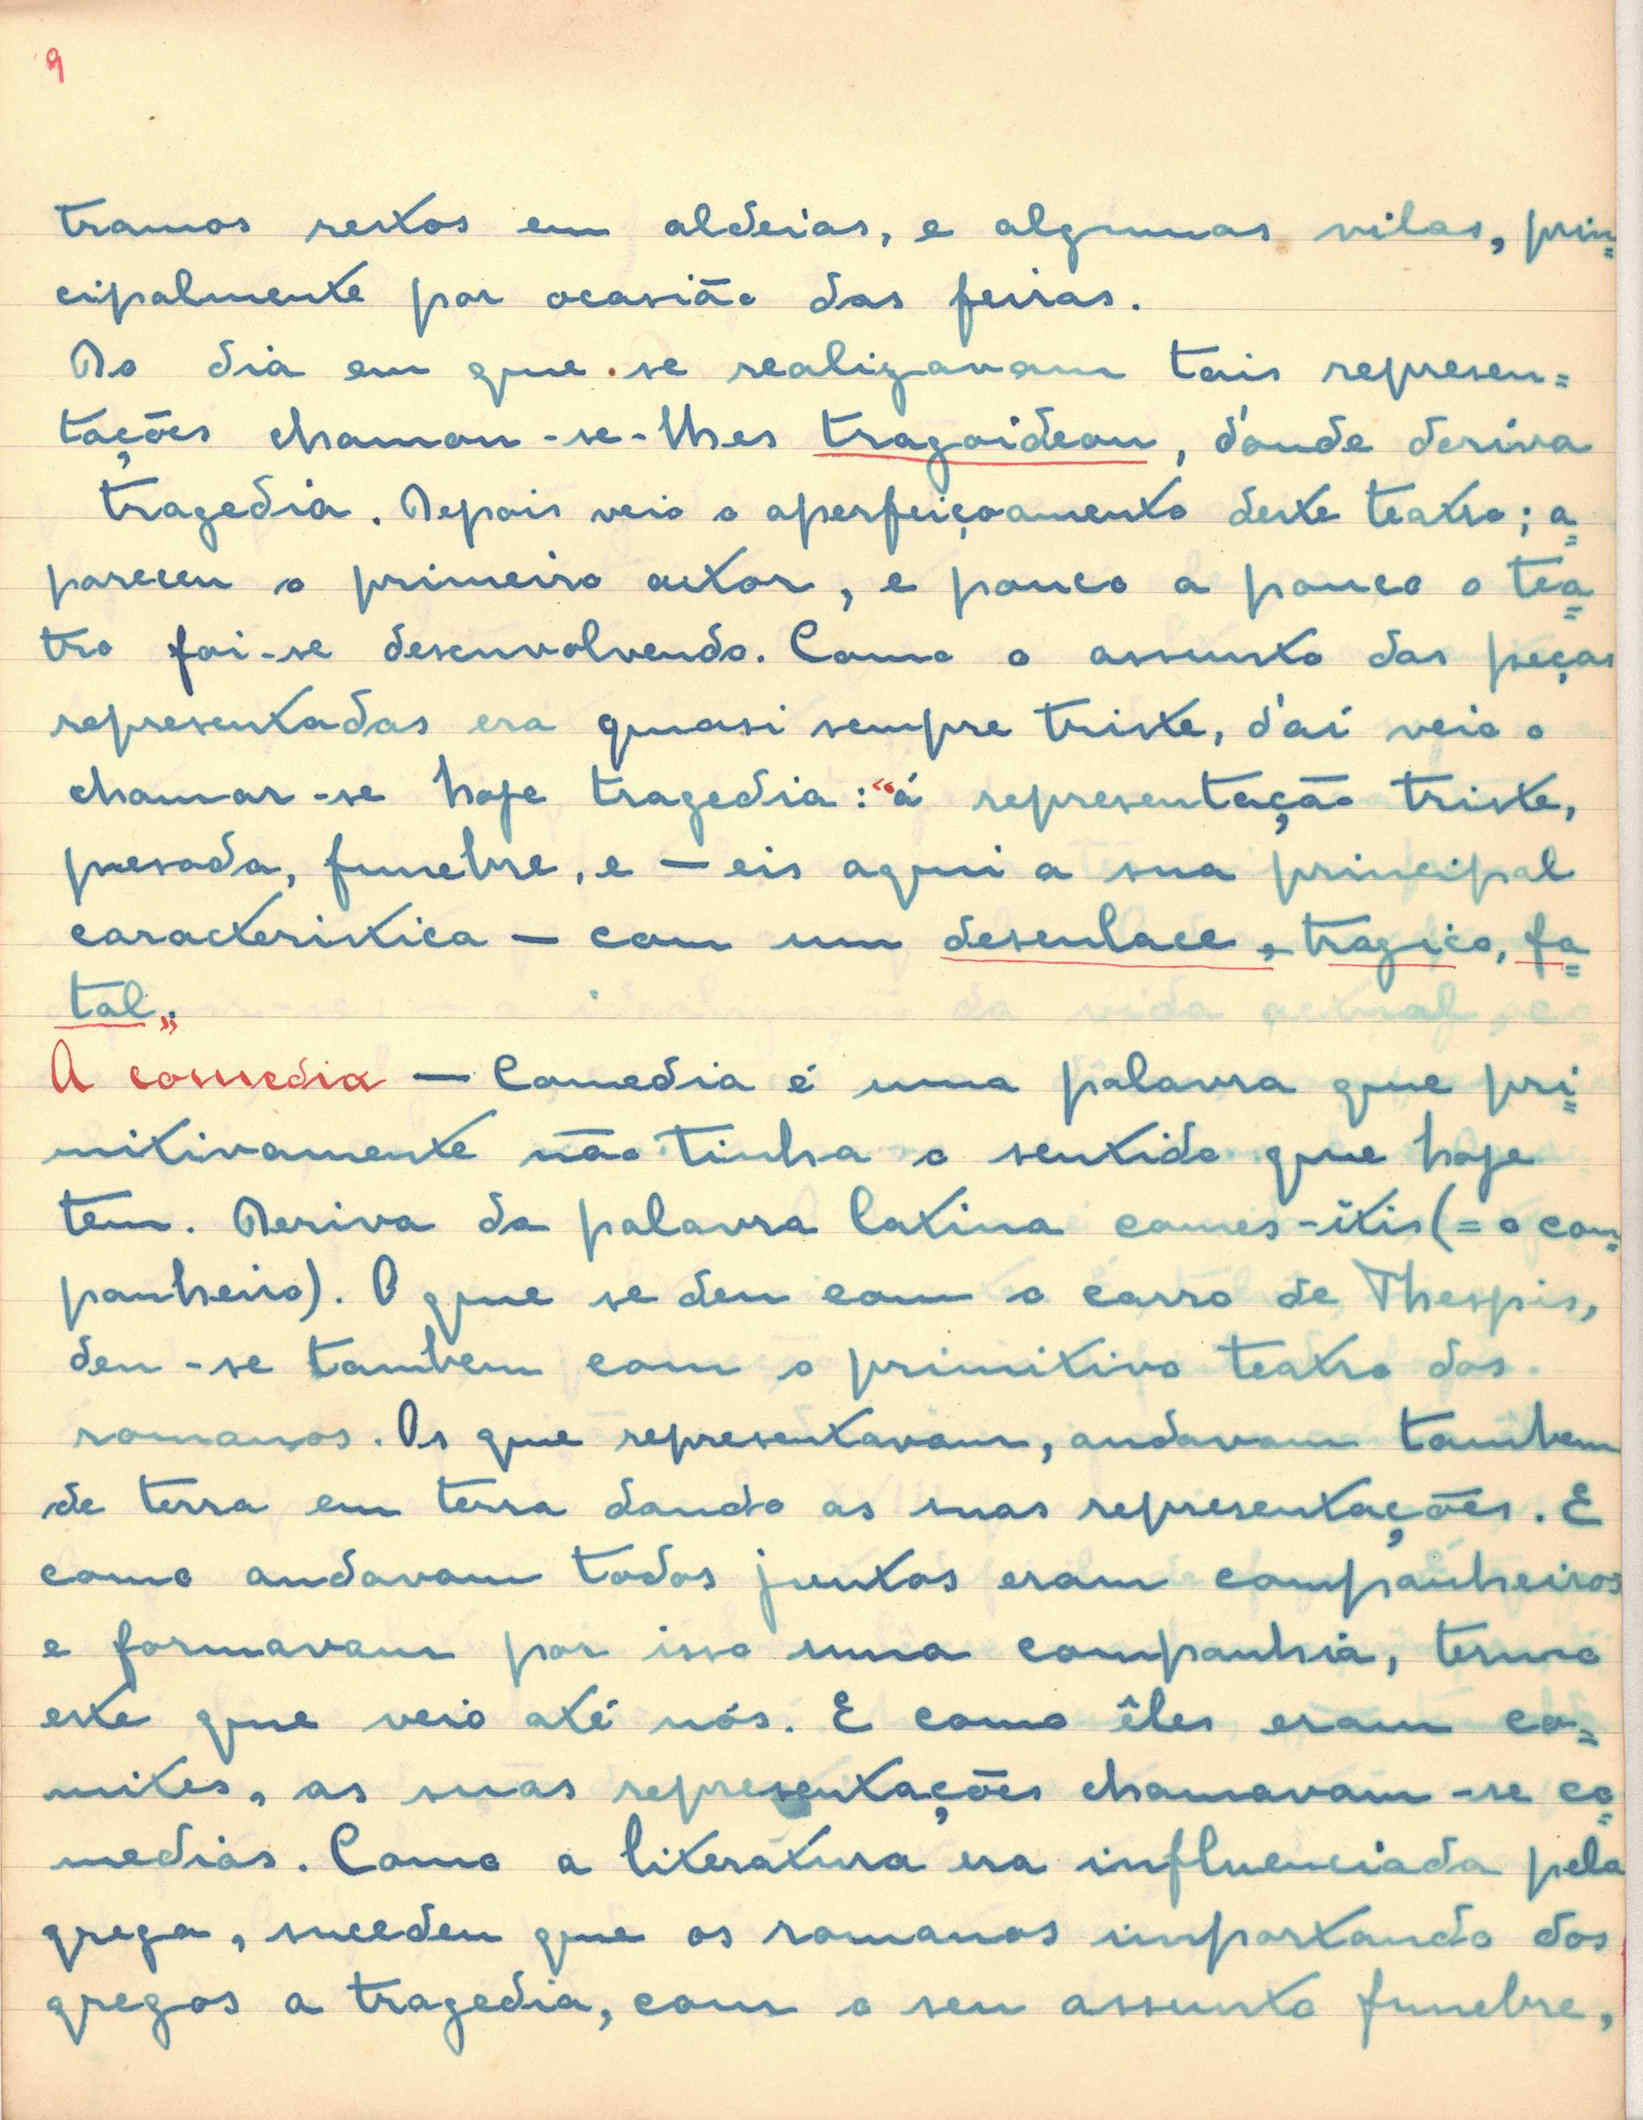 9
tramos restos em aldeias, e algumas vilas, prin=
cipalmente por ocasião das feiras.
Ao dia em que se realizavam tais represen=
tações chamou-se-lhes tragoideon, d'onde deriva
tragedia. Depois veio o aperfeiçoamento deste teatro; a=
pareceu o primeiro actor, e pouco a pouco o tea=
tro foi-se desenvolvendo. Como o assunto das peças
representadas era quasi sempre triste, d'aí veio o
chamar-se hoje tragedia: "á representação triste,
pesada, funebre, e — eis aqui a sua principal
caracteristica — com um desenlace, tragico, fa=
tal".
A comedia — Comedia é uma palavra que pri=
mitivamente não tinha o sentido que hoje
tem. Deriva da palavra latina comes-itis (= o com=
panheiro). O que se deu com o carro de Thespis,
deu-se tambem com o primitivo teatro dos
romanos. Os que representavam, andavam tambem
de terra em terra dando as suas representações. E
como andavam todos juntos eram companheiros
e formavam por isso uma companhia, termo
este que veio até nós. E como êles eram co=
mites, as suas representações chamavam-se co=
medias. Como a literatura era influenciada pela
grega, sucedeu que os romanos importando dos
gregos a tragedia, com o seu assunto funebre,